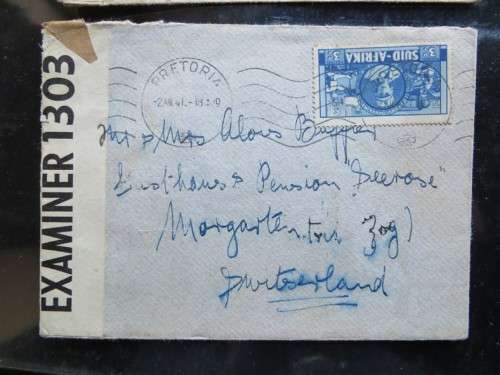 EXAMINER 1303
PRETORIA
SUID-AFRIKA
3D 3D
Mr & Mrs Alois
Gasthaus & Pension "Seerose"
Morgarten (Zug)
Switzerland